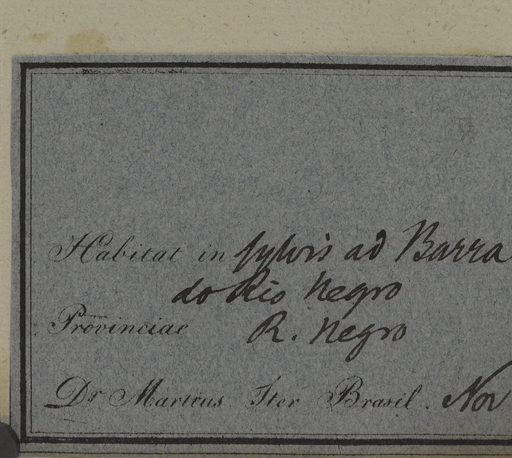 Habitat in sylvis ad Barra
do Rio Negro
Provinciae R. Negro
Dr Martius Iter Brasil. Nov